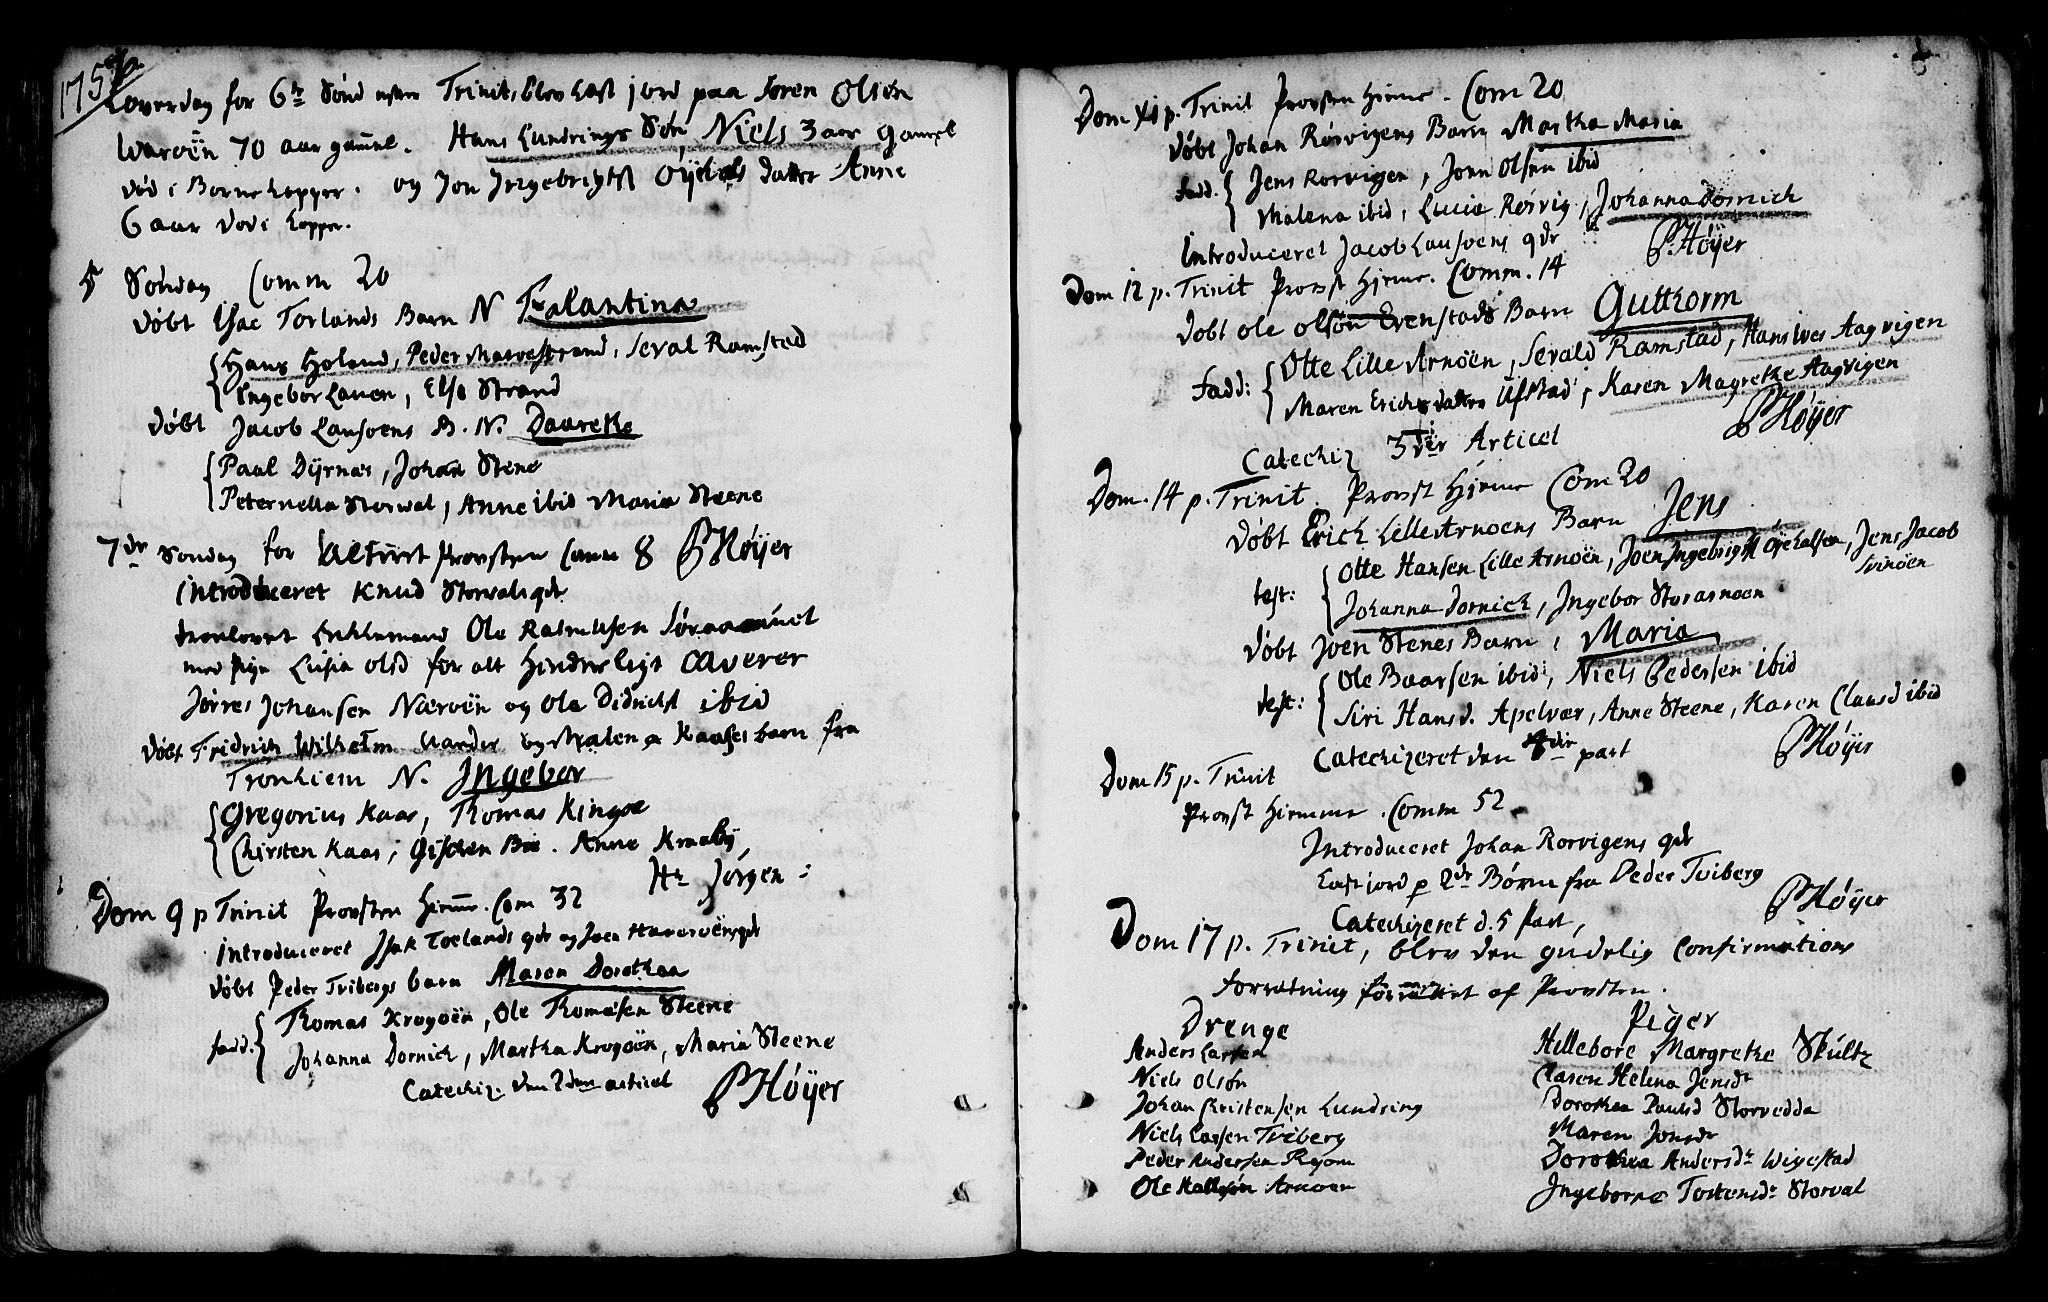 Loverdag for 6te Sønd efter Trinit, blev Cast jord paa Søren Olsøn
Warøen 70 aar gammel. Hans Lundrings Søn Niels 3 aar gamel
død i Børne kopper. og Jon Ingebrigtst Øyekals datter Anne
6 aar død i kopper.
Søndag Comm 20
døbt Isac Torlands Barn N Falantina
Hans Holand, Peder Marvestrand, Seval Ramsted
Ingebor Lauen, Else Strand
døbt Jacob Lausoens B. N. Daareke
Paal Dyrnæs, Johan Stene
Peternella Storwal, Anne ibid Maria Steene
7de Sondag for Provsten Comm 8 PHøyer
introduceret Knud Storvals qdr
troelovet Enkkemand Ole Rasmusen
med Pige Lusia olsd for alt Hinderligt caverer
Jørres Johansen Nærøen og Ole Didrichst ibid
døbt Fridrich Wilhelm Harder og Malena Kaases barn fra
Tronhiem N. Ingebor
Gregorius Kaas, Thomas Kingoe
Chirsten Kaas, Gischen Bie. Anne Kraabÿ
Hr Jørgen
Dom 9 p Trinit Provsten Hiemme. Com 32
introduceret Isak Toelands qdr og Joen Havarøens qdr
døbt Peder Tribergs barn Maren Dorothea
fadd: Thomas Krogøen, Ole Thomesen Steene
Johanna Dornich, Martha Krogøen, Maria Steene
Catechiz. den 2den articel PHøyer
Dom XI p. Trinit Provsten Hiemme. Com 20
døbt Johan Rørvigens Barn Martha Maria
fadd. Jens Rorvigen, Joen Olsen ibid
Malena ibid, Lucie Rørvig, Johanna Dornich
Introduceret Jacob Lausoens qdr PHøyer
Dom 12 p. Trinit Provst Hjemme. Comm. 14
døbt Ole Olsøn Evenstads Barn Gutthorm
Fadd: Otte Lille Arnøen, Sevald Ramstad, Hans Iver Aagvigen
Maren Erichsdatter Ufstad, Karen Magrethe Aagvigen
PHøyer
Catechiz 3die Articel
Dom. 14 p. Trinit. Provst Hjemme Com 20
døbt Erich Lille Arnoens Barn Jens
test: Otte Hansen Lille Arnøen, Joen Ingebrigtst Øyekalsen, Jens Jacob
Svinöen
Johanna Dornich, Ingebor Storarnoen
døbt Joen Stenes Barn, Maria
test: Ole Baarsen ibid, Niels Pedersen ibid
Siri Hansd. Apelvær, Anne Steene, Karen Clausd ibid
Catechizeret den 4de part PHøyer
Dom 15 p. Trinit
Provst Hiemme. Comm 52
Introduceret Johan Rorvigens qdr
Cast jord p 2de Børn fra Peder Triberg
Catechizeret d. 5 Part, PHøyer
Dom 17 p. Trinit, blev den gudelig Confirmations
Forretning forrettet af Provsten.
Drenge
Anders Larsen
Niels Olsøn
Johan Christensen Lundring
Niels Larsen Triberg
Peder Andersen Rosom
Ole Hallesøn Arnøen
Piger
Hillebore Margrethe Skultz
Claren Helena Jensdr
Dorothea Paulsd Storvedda
Maren Jonsdr
Dorothea Andersdr Wigestad
Ingeborre Tostensdr Storval